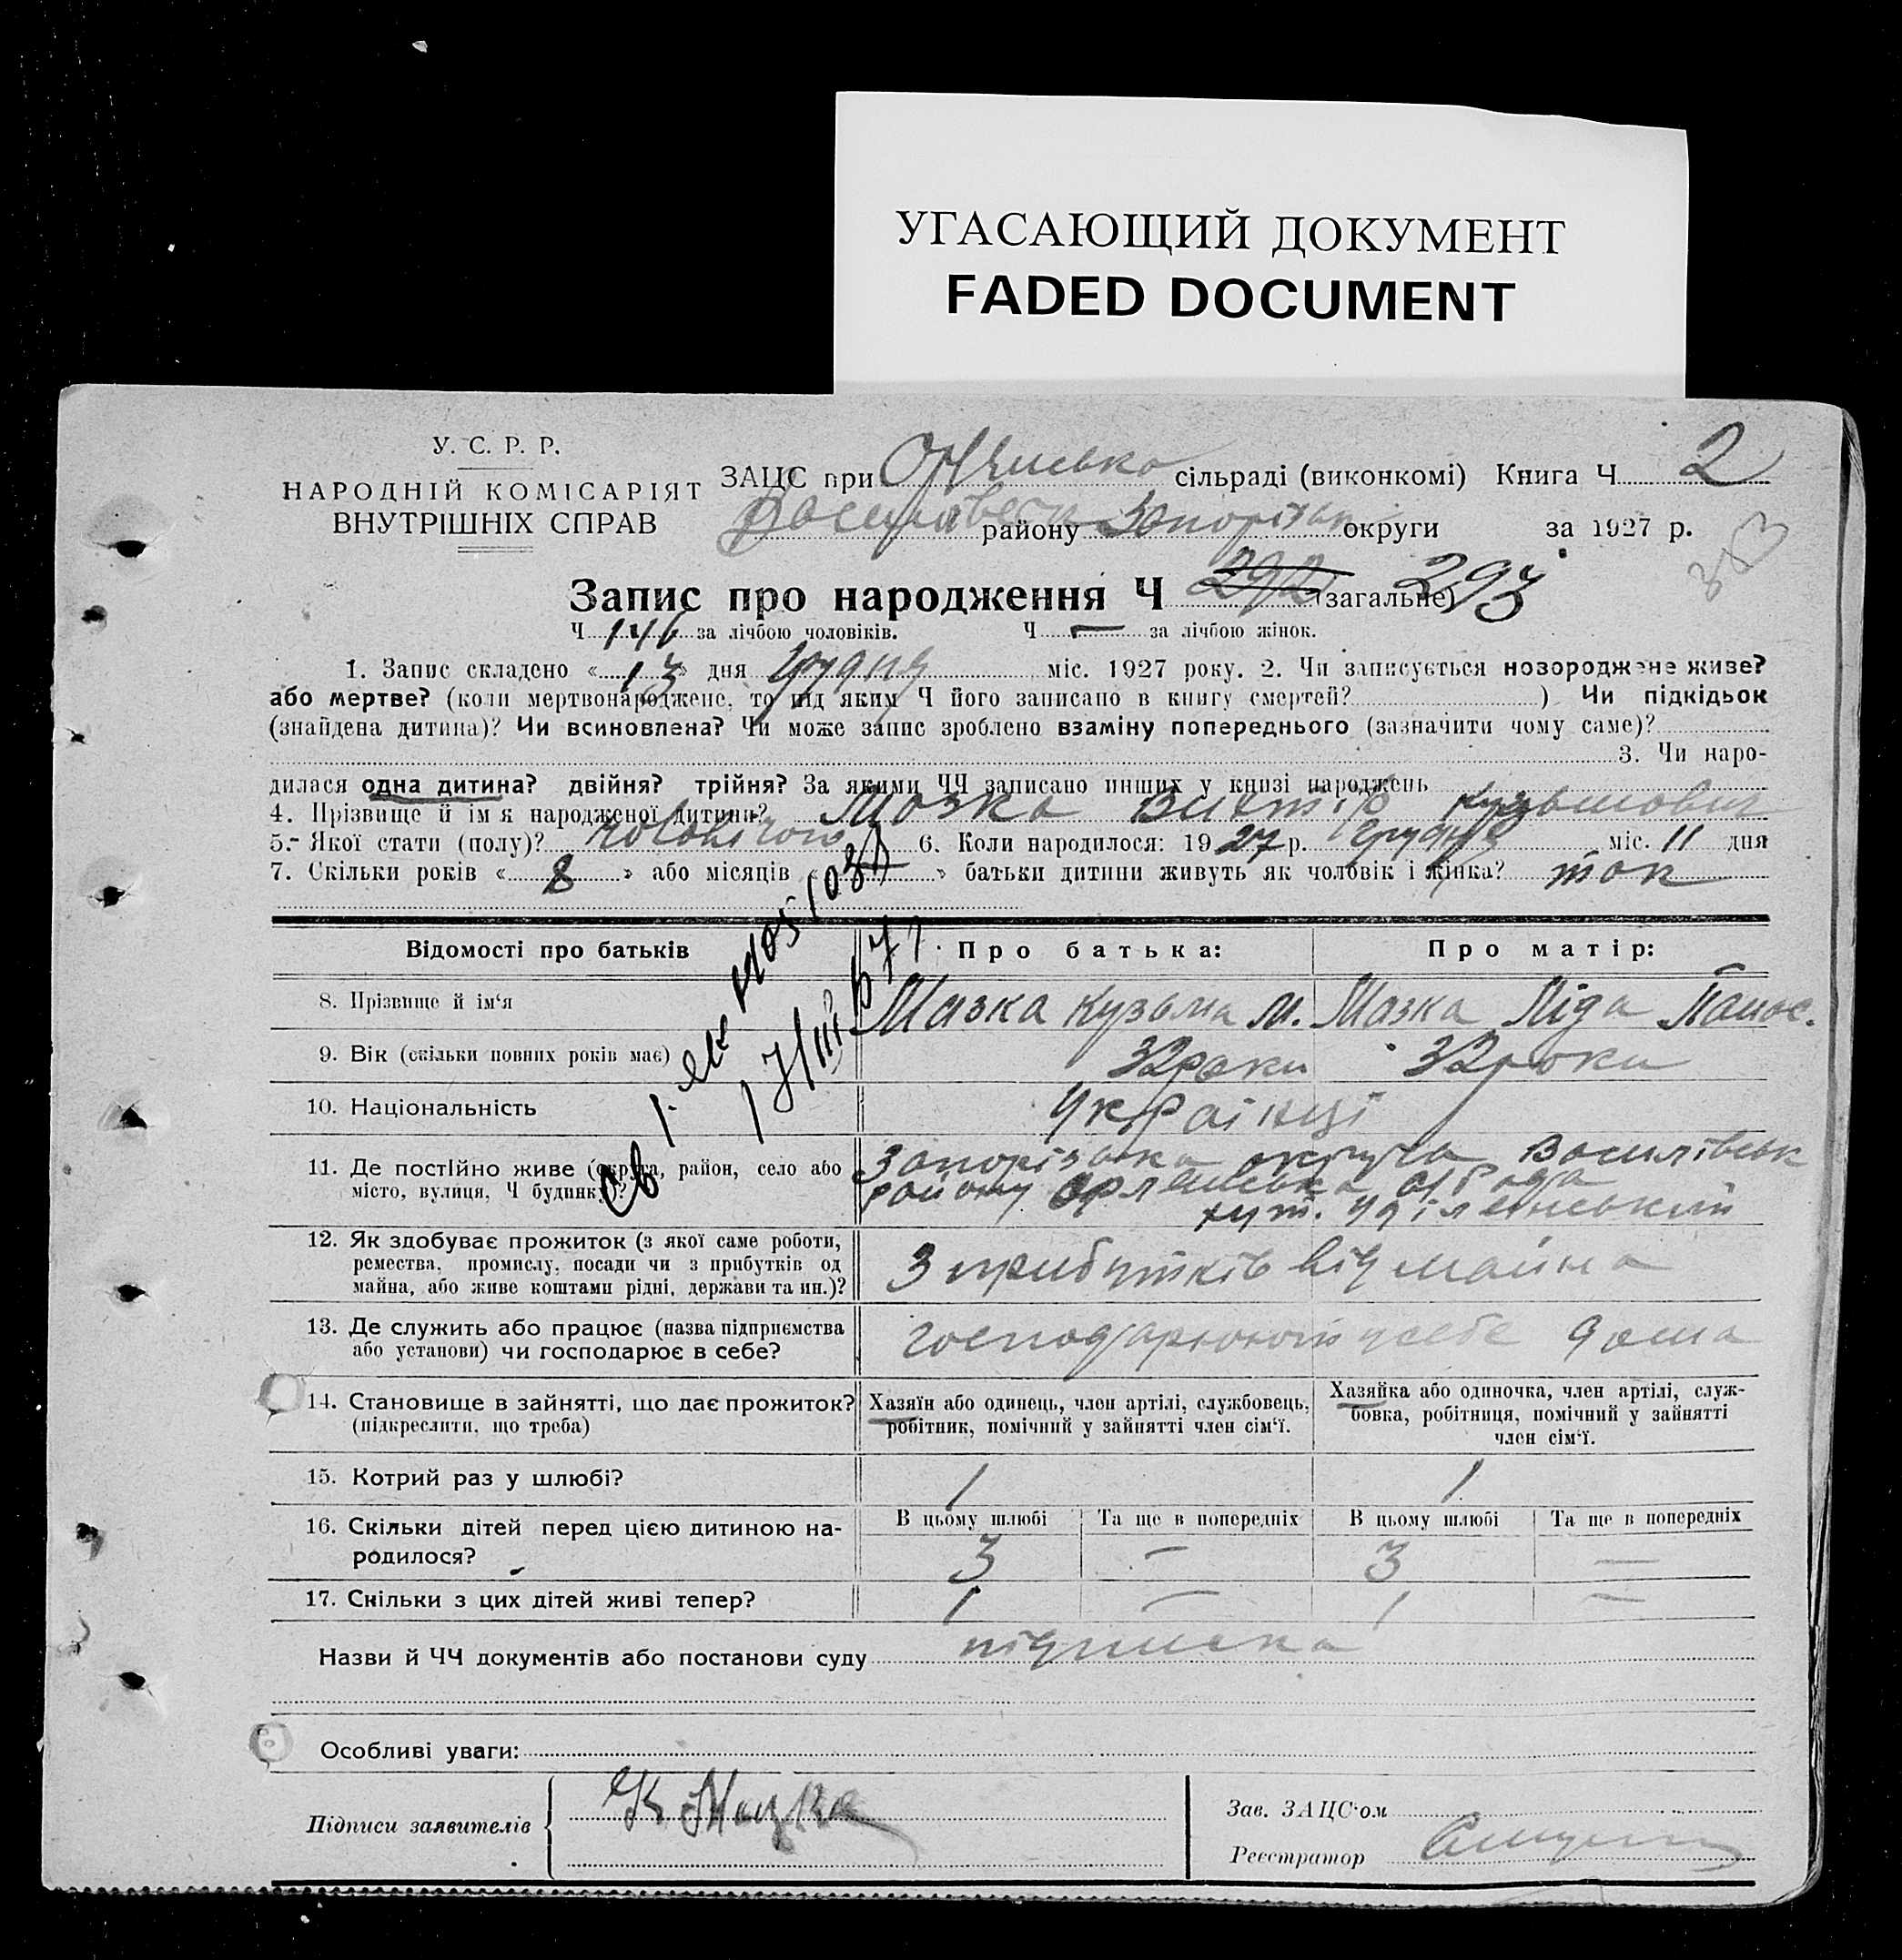 УГАСАЮЩИЙ ДОКУМЕНТ
FADED DOCUMENT
У. С. Р. Р.
НАРОДНІЙ КОМІСАРІЯТ
ВНУТРІШНІХ СПРАВ
ЗАЦС при сільраді (виконкомі) Книга Ч 2
району округи за 1927 р.
353
Запис про народження Ч 292 (загальне) 293
Ч 146 за лічбою чоловіків. Ч — за лічбою жінок.
1. Запис складено «13» дня грудня міс. 1927 року. 2. Чи записується новороджене живе?
або мертве? (коли мертвонароджене, то під яким Ч його записано в книгу смертей? ) Чи підкідьок
(знайдена дитина)? Чи всиновлена? Чи може запис зроблено взаміну попереднього (зазначити чому саме)?
3. Чи наро-
дилася одна дитина? двійня? трійня? За якими ЧЧ записано инших у книзі народжень
4. Прізвище й ім'я народженої дитини? Мазка Виктір Кузьмович
5. Якої стати (полу)? чоловічого 6. Коли народилося: 1927 р. грудня міс. 11 дня
7. Скільки років «8» або місяців « » батьки дитини живуть як чоловік і жінка? так
Відомості про батьків Про батька: Про матір:
8. Прізвище й ім'я Мазка Кузьма М. Мазка Ліда Панас.
9. Вік (скільки повних років має) 32 роки 32 роки
10. Національність Українці
11. Де постійно живе (округа, район, село або місто, вулиця, Ч будинку)? Запорізька округа Василівськ
району Орлянська с/рада
хут.
12. Як здобуває прожиток (з якої саме роботи,
ремества, промислу, посади чи з прибутків од
майна, або живе коштами рідні, держави та ин.)? З прибутків від майна
13. Де служить або працює (назва підприємства
або установи) чи господарює в себе? господарюют у себе дома
14. Становище в зайнятті, що дає прожиток?
(підкреслити, що треба)
Хазяїн або одинець, член артілі, службовець,
робітник, помічний у зайнятті член сім'ї.
Хазяйка або одиночка, член артілі, служ-
бовка, робітниця, помічний у зайнятті
член сім'ї.
15. Котрий раз у шлюбі? 1 1
16. Скільки дітей перед цією дитиною на-
родилося?
В цьому шлюбі Та ще в попередніх В цьому шлюбі Та ще в попередніх
3 — 3 —
17. Скільки з цих дітей живі тепер? 1 — 1 —
Назви й ЧЧ документів або постанови суду підписка
Особливі уваги:
Підписи заявителів К Мазка
Зав. ЗАЦС'ом
Реєстратор